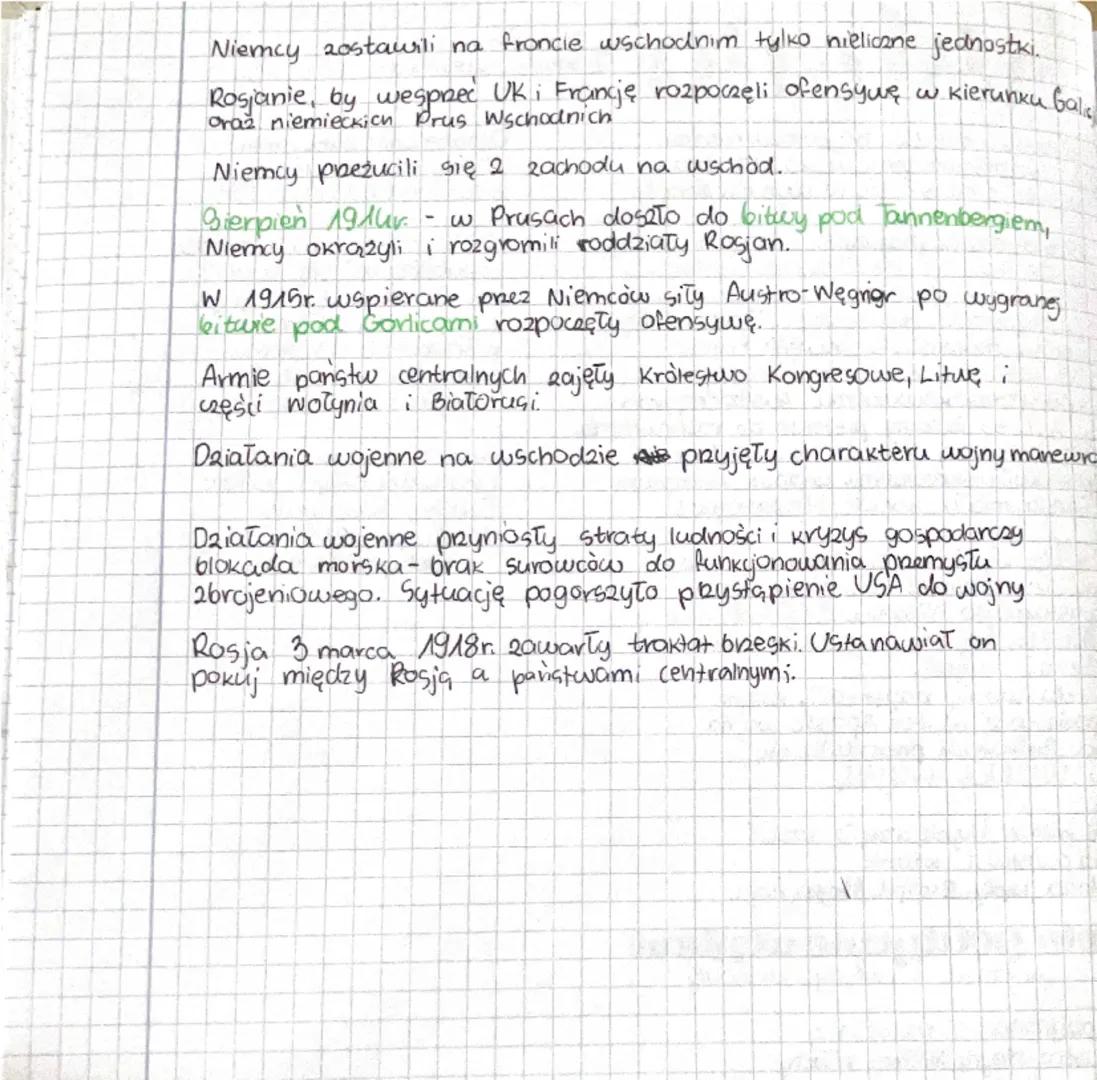 Niemcy zostawili na froncie wschodnim tylko nieliczne jednostki.
Rosjanie, by wesprzeć UK i Francję rozpoczęli ofensywę w kierunku
oraz niemieckich Prus Wschodnich
Niemcy przeżucili się z zachodu na wschód.
Sierpień 1914r. - w Prusach doszło do bitwy pod Tannenbergiem,
Niemcy okrążyli i rozgromili roddziały Rosjan.
W 1915r. wspierane przez Niemców siły Austro-Węgrier po wygranej
bitwie pod Gorlicami rozpoczęły ofensywę.
Armie państw centralnych zajęły Królestwo Kongresowe, Litwę i
części Wołynia i Białorusi.
Działania wojenne na wschodzie przyjęły charakteru wojny
Działania wojenne przyniosły straty ludności i kryzys gospodarczy
blokada morska - brak surowców do funkcjonowania przemysłu
zbrojeniowego. Sytuację pogorszyło przystąpienie USA do wojny
Rosja 3 marca 1918r. zawarły traktat brzeski. Ustanawiał on
pokuj między Rosją a państwami centralnymi.